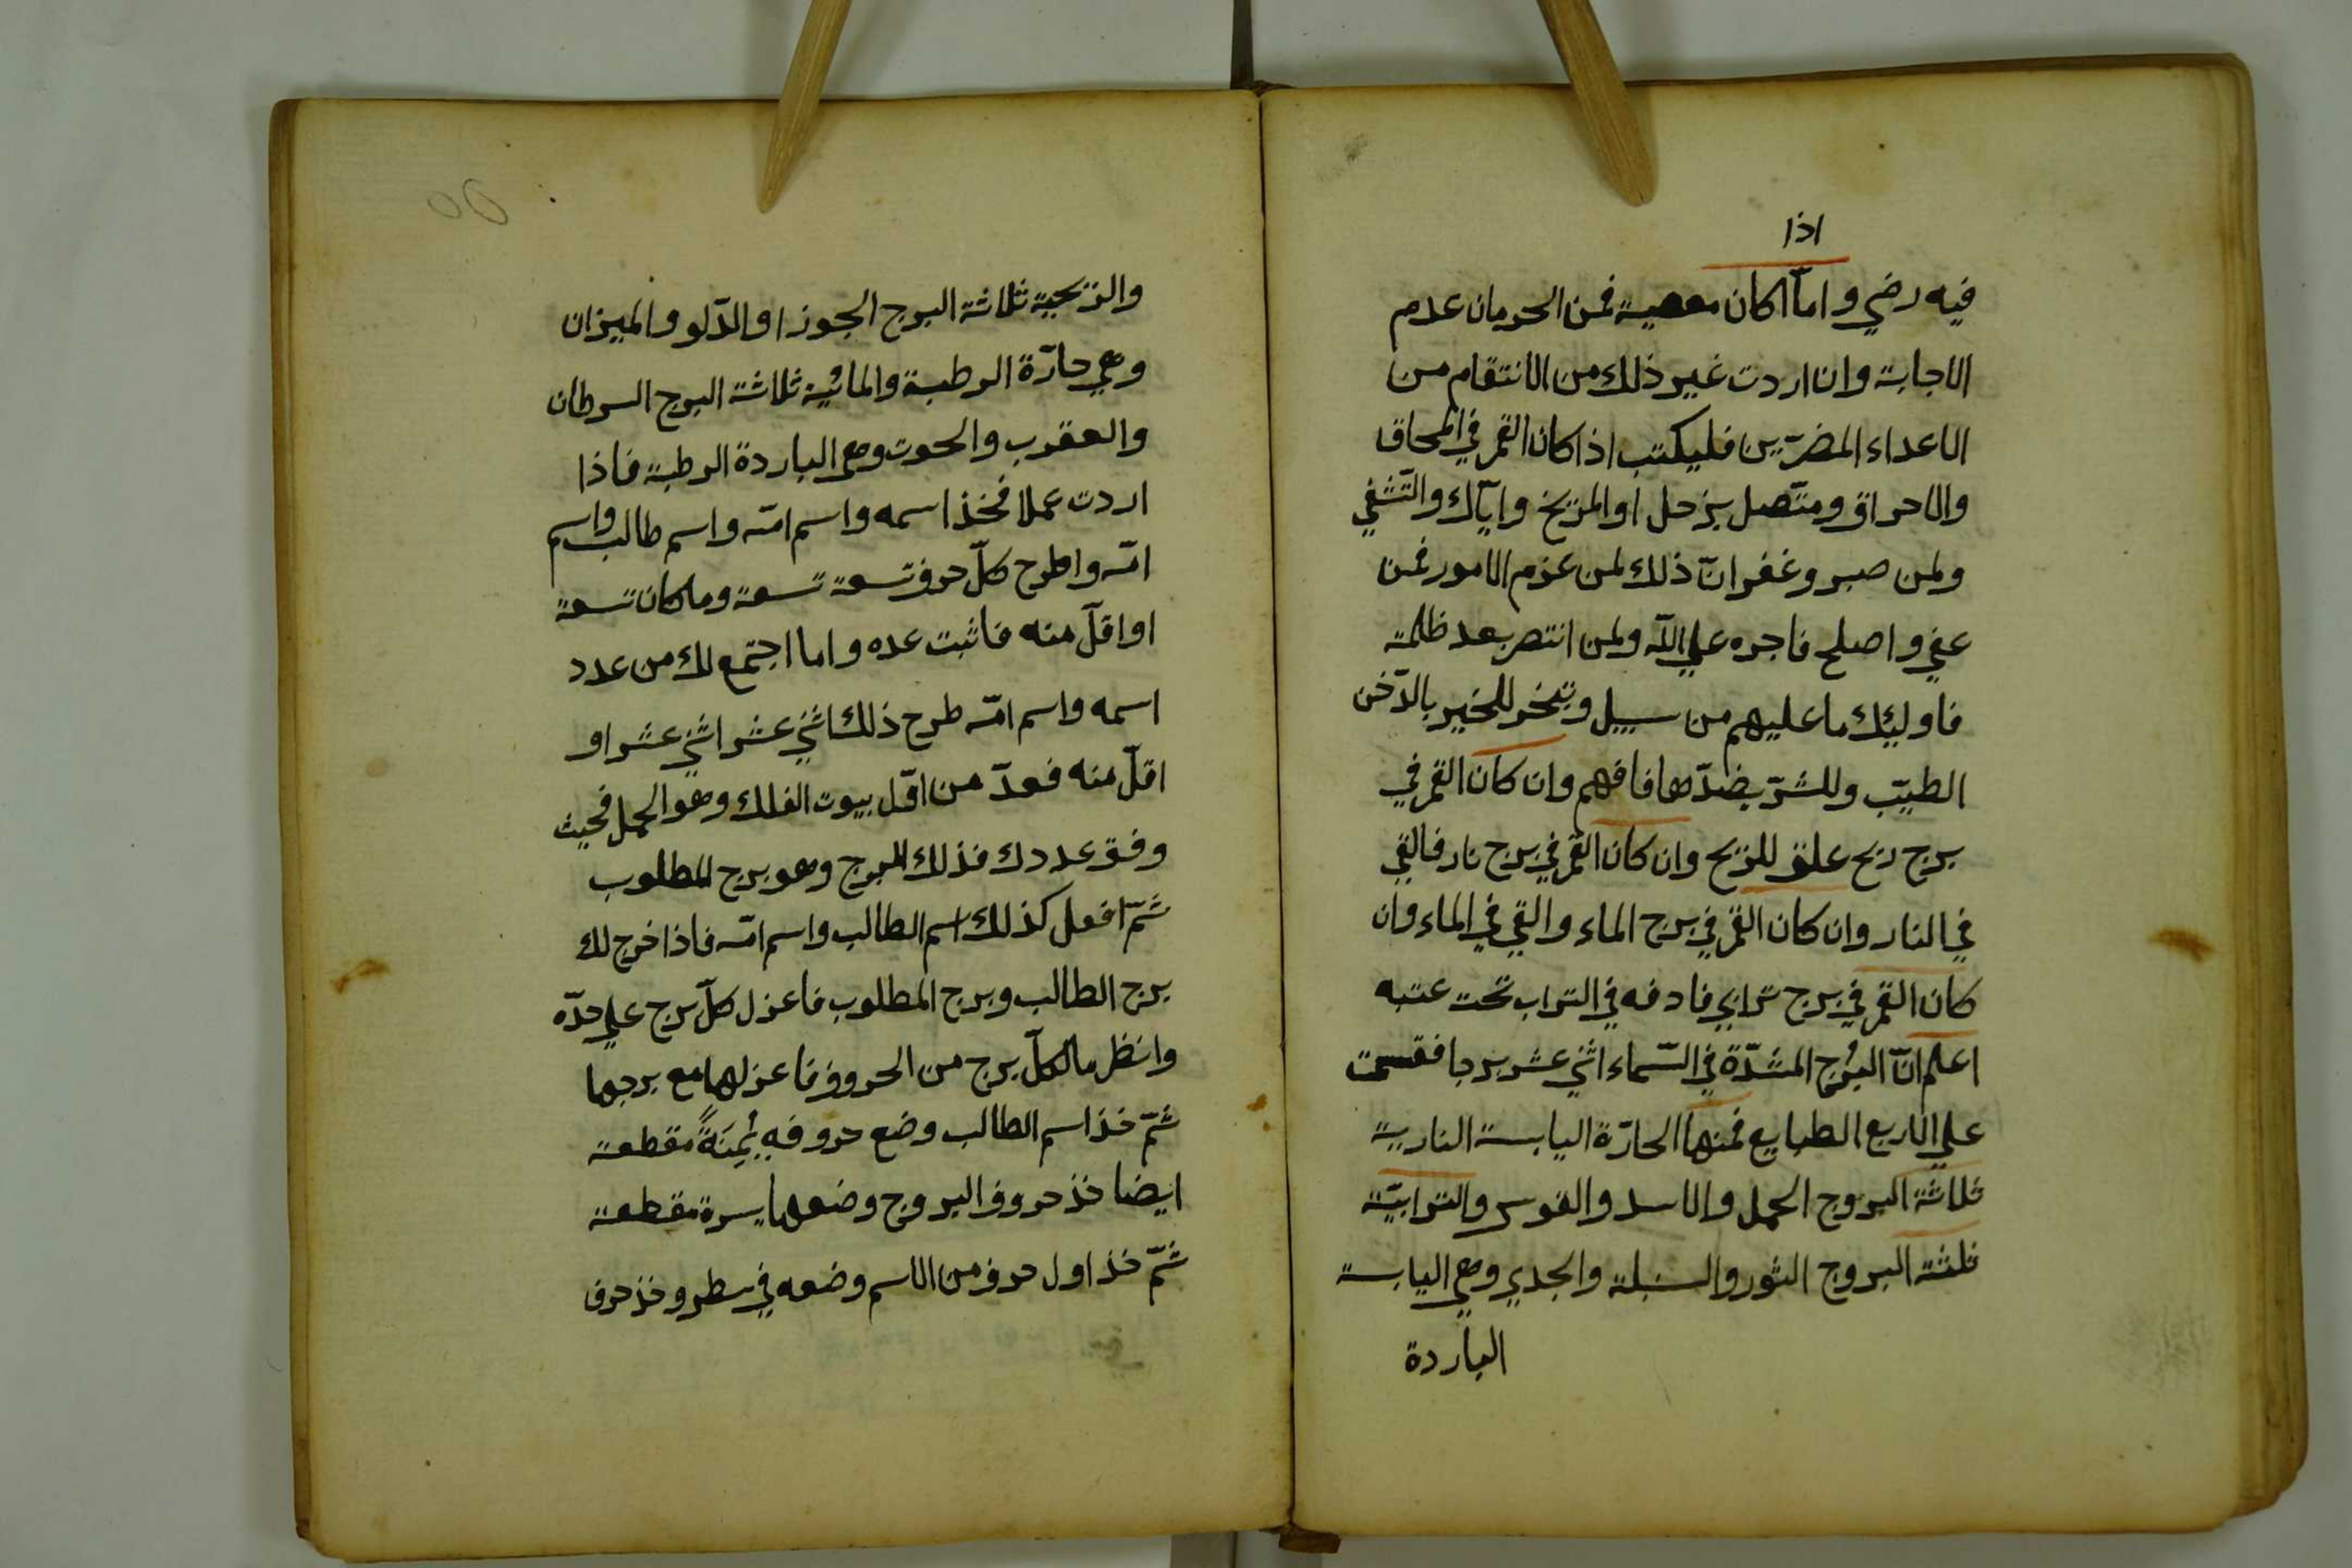 اذا
فيه رضي واما كان معصية فمن الحرمان عدم
الاجابة وان اردت غير ذلك من الانتقام من
الاعداء المضرّين فليكتب اذا كان القمر في المحاق
والاحراق ومتّصل بزحل او المريخ وايّاك والتّشفي
ولمن صبر وغفر انّ ذلك لمن عزم الامور فمن
عفي واصلح فاجره علي الله ولمن انتصر بعد ظلمة
فاوليك ما عليهم من سبيل وتبخر للخير بالدّخن
الطيّب وللشرّ بضدّها فافهم وان كان القمر في
برج ريح علق للريح وان كان القمر في برج نار فالقي
في النار وان كان القمر في برج الماء والقي في الماء وان
كان القمر في برج ترابي فادفه في التراب تحت عتبه
اعلم انّ البُرج المشدّة في السّماء اثني عشر برجا فقسمت
علي الاربع الطبايع فمنها الحارّة اليابسة النارية
ثلاثة البروج الحمل والاسد والقوس والترابيّة
ثلثة البروج الثور والسنبلة والجدي وهي اليابسة
الباردة
والريحية ثلاثة البرج الجوزا والدّلو والميزان
وهي حارّة الرطبة والمائية ثلاثة البرج السرطان
والعقرب والحوت وهي الباردة الرطبة فاذا
اردت عملا فخذ اسمه واسم امّه واسم طالب واسم
امّه واطرح كلّ حرف تسعة تسعة وما كان تسعة
او اقلّ منه فاثبت عده واما اجتمع لك من عدد
اسمه واسم امّه طرح ذلك اثني عشر اثني عشر او
اقلّ منه فعدّ من اوّل بيوت الفلك وهو الحمل فحيث
وفق عددك فذلك البرج وهو برج المطلوب
ثمّ افعل كذلك اسم الطالب واسم امّه فاذا خرج لك
برج الطالب وبرج المطلوب فاعزل كلّ برج علي حدّه
وانظر ما لكلّ برج من الحروف فاعزلها مع برجها
ثمّ خذ اسم الطالب وضع حروفه يُمِنَةً مقطعة
ايضا خذ حروف البروج وضعها يسرة مقطعة
ثمّ خذ اول حرف من الاسم وضعه في سطر وخذ حرف